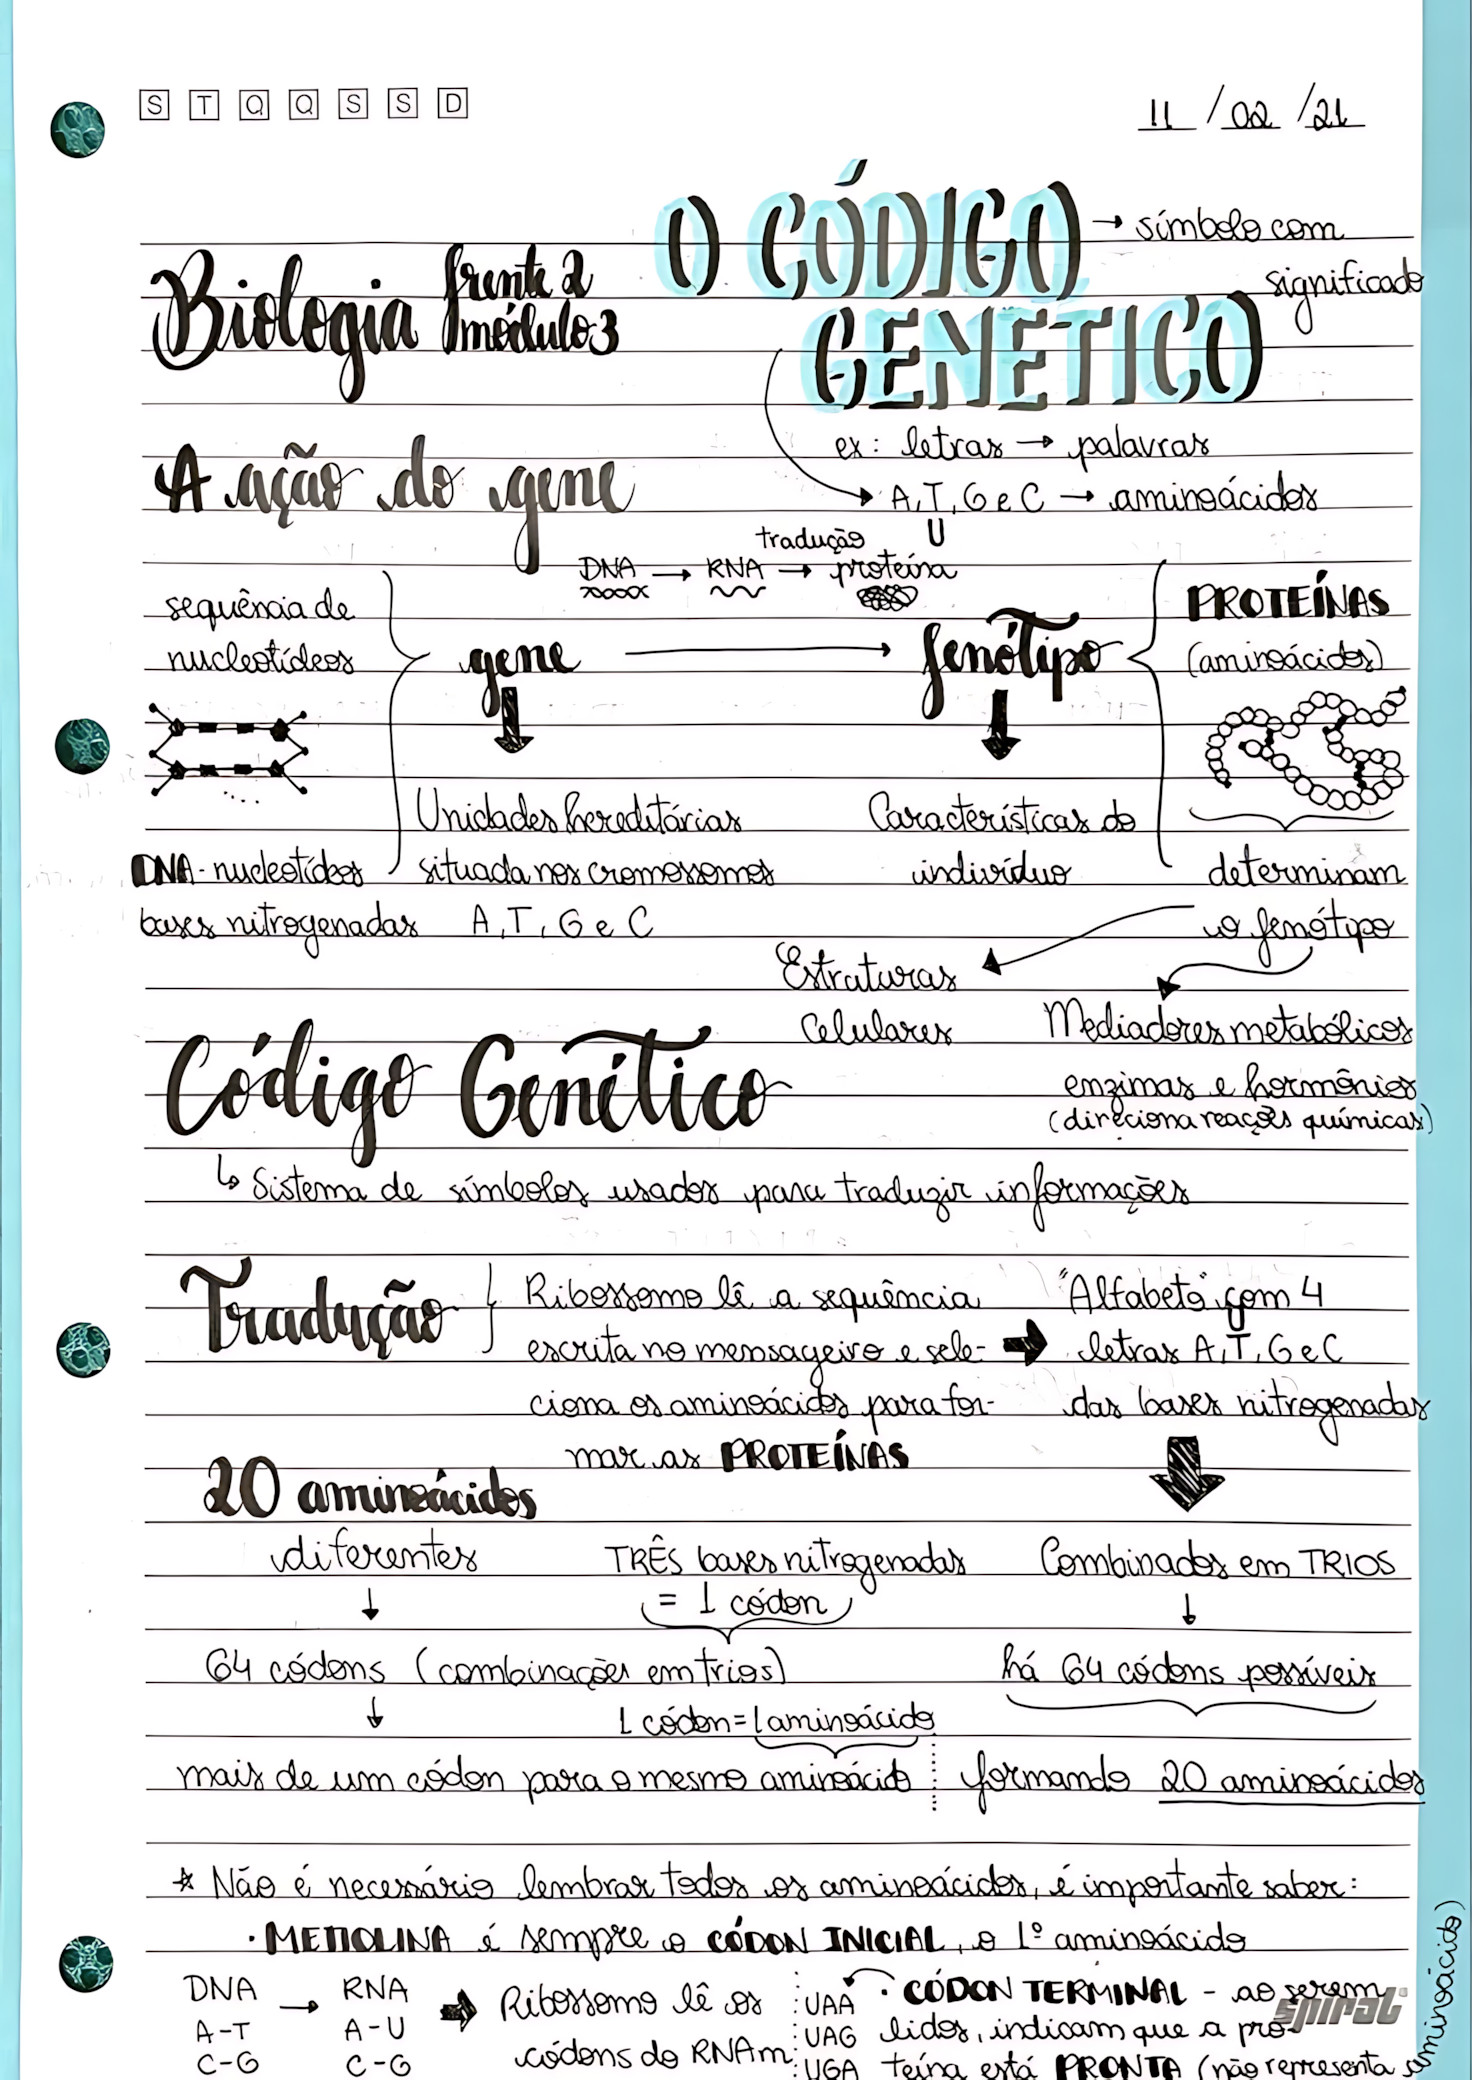 S T Q Q S S D
11 / 02 / 21
O CÓDIGO GENÉTICO → símbolo com significado
Biologia frente 2 módulo 3
ex: letras → palavras
A, T, G e C → aminoácidos
U
A ação do gene
tradução
DNA → RNA → proteína
sequência de nucleotídeos
gene → fenótipo
PROTEÍNAS
(aminoácidos)
Unidades hereditárias
situada nos cromossomos
Características do
indivíduo
determinam
o fenótipo
DNA - nucleotídeos
bases nitrogenadas A, T, G e C
Estruturas
Celulares
Mediadores metabólicos
enzimas e hormônios
(direciona reações químicas)
Código Genético
↳ Sistema de símbolos usados para traduzir informações
Tradução
Ribossomo lê a sequência
escrita no mensageiro e sele-
ciona os aminoácidos para for-
mar as PROTEÍNAS
"Alfabeto" com 4
U
letras A, T, G e C
das bases nitrogenadas
20 aminoácidos
diferentes
TRÊS bases nitrogenadas
= 1 códon
Combinados em TRIOS
64 códons (combinações em trios)
há 64 códons possíveis
1 códon = 1 aminoácido
mais de um códon para o mesmo aminoácido
formando 20 aminoácidos
* Não é necessário lembrar todos os aminoácidos, é importante saber:
· METIOLINA é sempre o CÓDON INICIAL, o 1º aminoácido
DNA → RNA
A-T A-U
C-G C-G
Ribossomo lê os
códons do RNAm
UAA
UAG
UGA
· CÓDON TERMINAL - ao serem
lidos, indicam que a pro-
teína está PRONTA (não representa aminoácido)
spiral